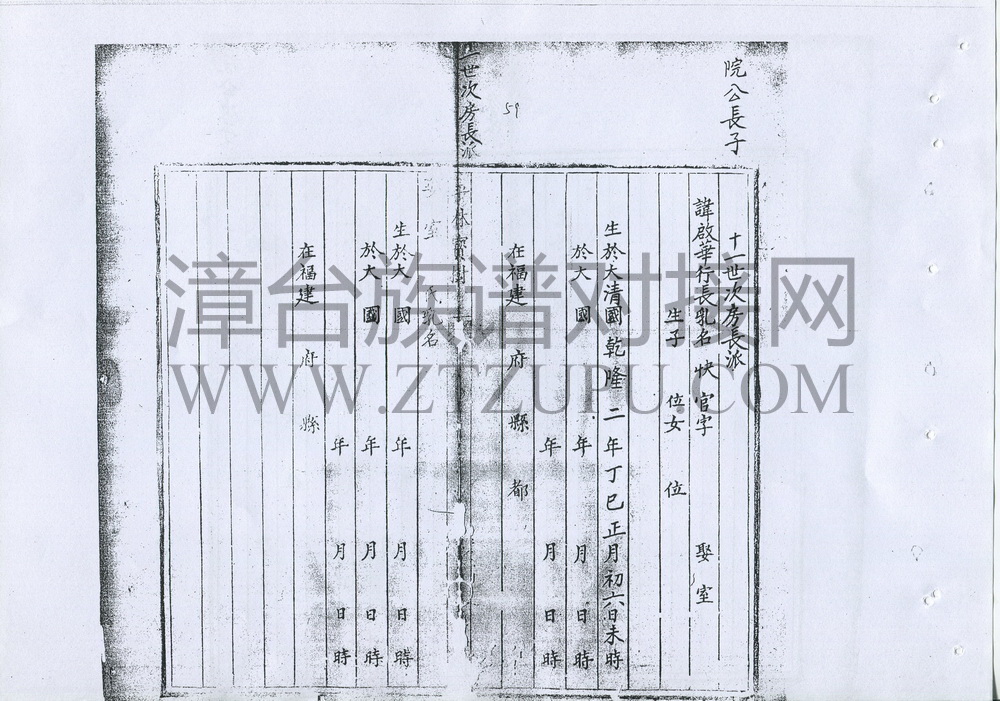 院公長子
十一世次房長派
諱啟華行長乳名快官字 娶室
生子 位女 位
生於大清國乾隆二年丁巳正月初六日未時
於大 國 年 月 日 時
年 月 日 時
在福建 府 縣 都
59
一世次房長派
室 氏乳名
生於大 國 年 月 日 時
於大 國 年 月 日 時
年 月 日 時
在福建 府 縣
漳台族谱对接网
WWW.ZTZUPU.COM